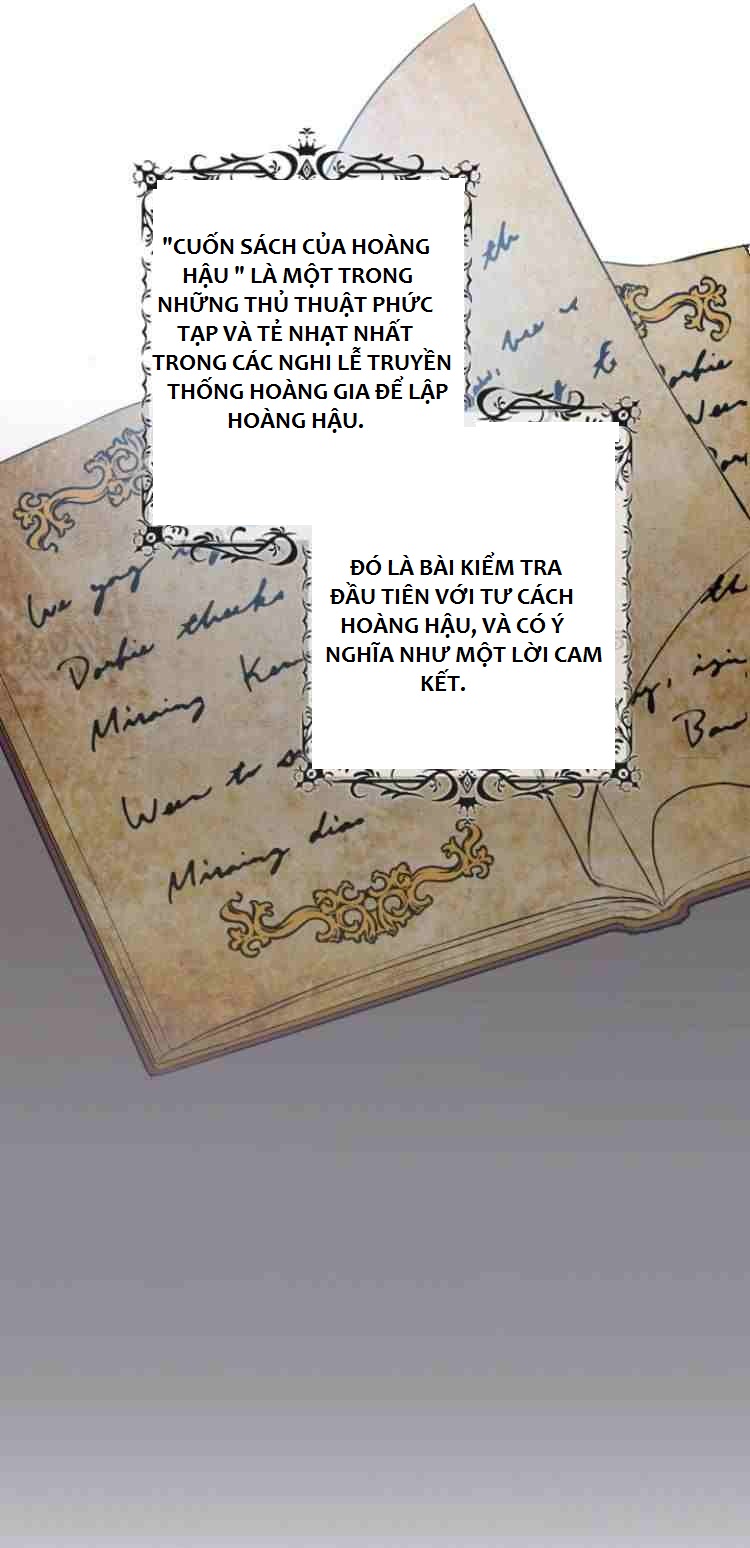 "CUỐN SÁCH CỦA HOÀNG
HẬU " LÀ MỘT TRONG
NHỮNG THỦ THUẬT PHỨC
TẠP VÀ TẺ NHẠT NHẤT
TRONG CÁC NGHI LỄ TRUYỀN
THỐNG HOÀNG GIA ĐỂ LẬP
HOÀNG HẬU.
ĐÓ LÀ BÀI KIỂM TRA
ĐẦU TIÊN VỚI TƯ CÁCH
HOÀNG HẬU, VÀ CÓ Ý
NGHĨA NHƯ MỘT LỜI CAM
KẾT.
We
Darbie theeks
Miraing
Ween to
Miraing dias